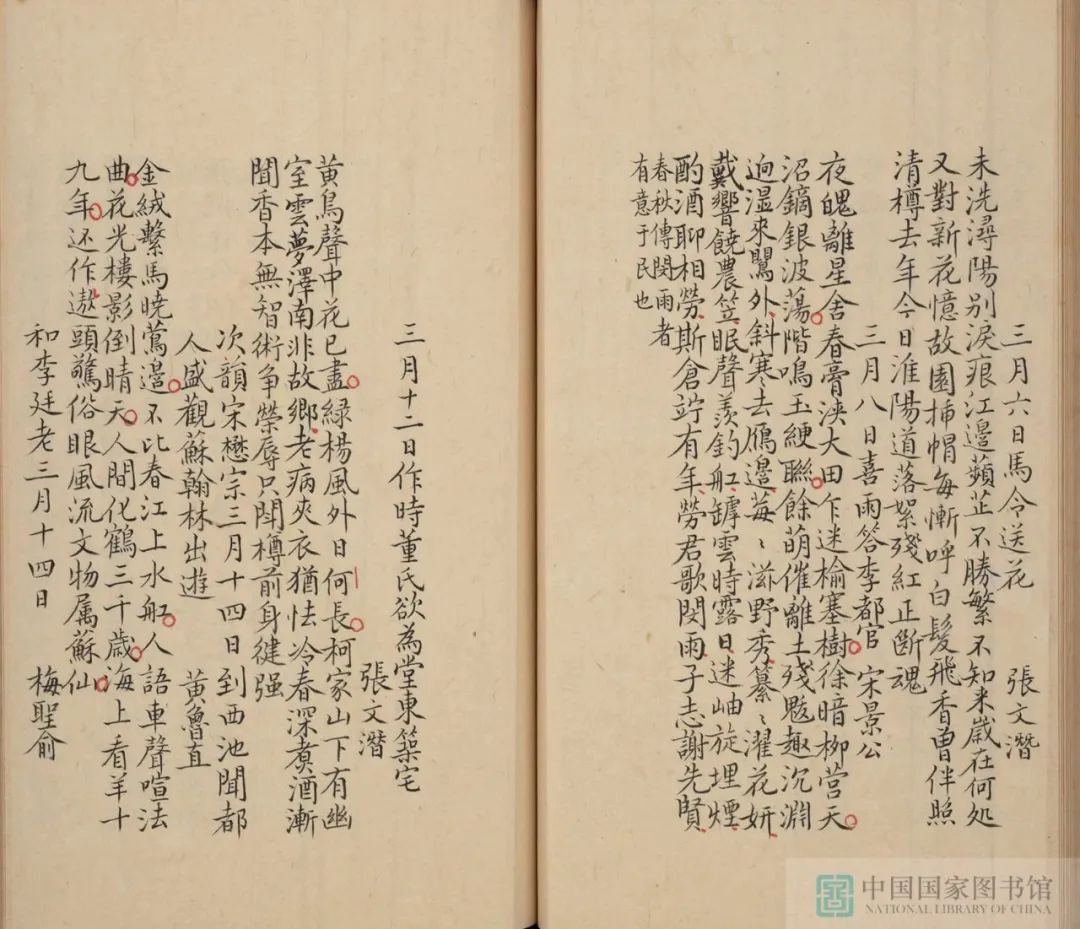 三月六日馬令送花　張文潛
未洗潯陽別淚痕江邊蘋芷不勝繁不知来歲在何処
又對新花憶故園插帽每慚呼白髮飛香曾伴照
清樽去年今日淮陽道落絮殘紅正斷魂
三月八日喜雨答李都官　宋景公
夜魄離星舍春膏浹大田乍迷榆塞樹徐暗柳营天
沼鏑銀波蕩階鳴玉綆聯餘萌催離土殘魃趣沉淵
迥湿来鸎外斜寒去鴈邊莓〻滋野秀纂〻濯花妍
戴響饒農笠眠聲羡釣舡罅雲時露日迷岫旋埋煙
酌酒聊相勞斯倉竚有年勞君歌閔雨子志謝先賢
春秋傳閔雨者
有意于民也
三月十二日作時董氏欲為堂東築宅
張文潛
黄鳥聲中花已盡緑楊風外日何長柯家山下有幽
室雲夢澤南非故鄉老病夾衣猶怯冷春深煮酒漸
聞香本無智術争榮辱只聞樽前身健强
次韻宋懋宗三月十四日到西池聞都
人盛觀蘇翰林出遊　黄魯直
金絨繫馬曉鶯邊不比春江上水舡人語車聲喧法
曲花光樓影倒晴天人間化鶴三千歲海上看羊十
九年还作遨頭驚俗眼風流文物属蘇仙
和李廷老三月十四日　梅聖俞
中国国家图书馆
NATIONAL LIBRARY OF CHINA